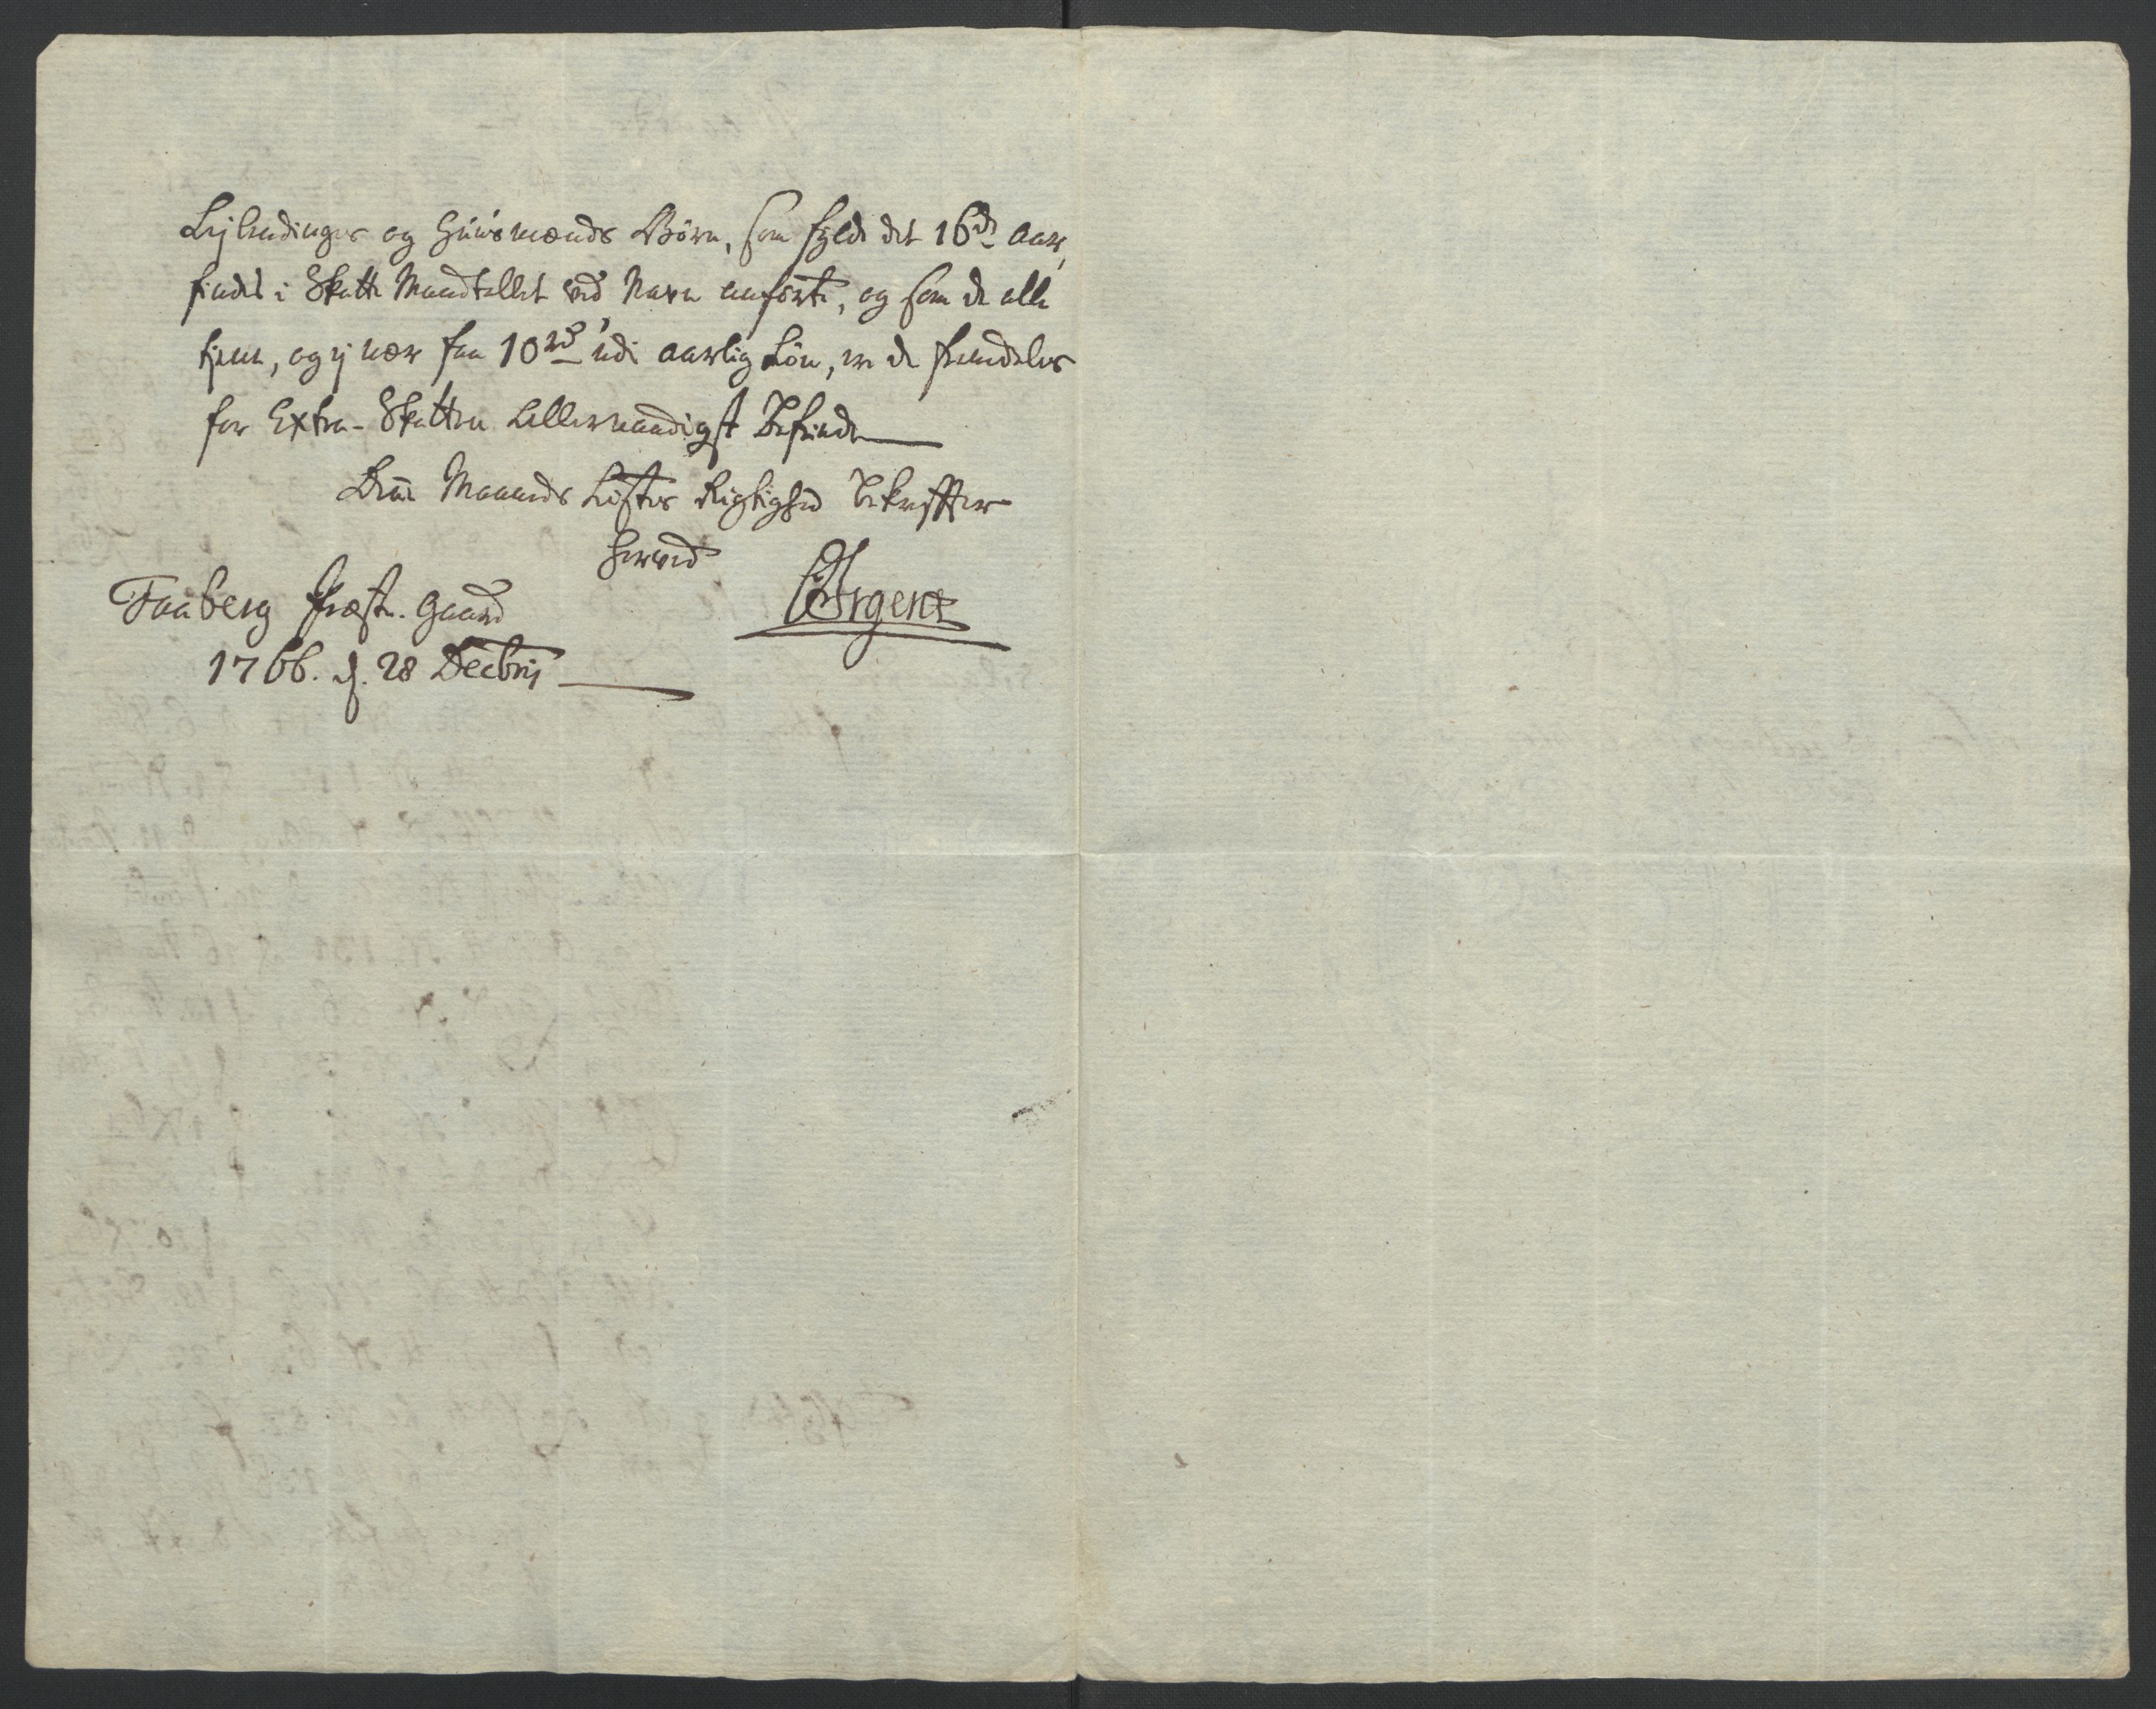 Lejlendinges og Huusmænds Börn, som fylde det 16de Aar,
findes i Skatte Mandtallet ved Navn anförte, og som de alle
tjene, og ej over faa 10 rd udi aarlig Lön, er de fremdeles
for Extra-Skatten Allernaadigst Befriede
Denne Maaneds Listes Rigtighed Bekræfter
herved
Faaberg Præste-gaard
1766. d. 28 Decbris